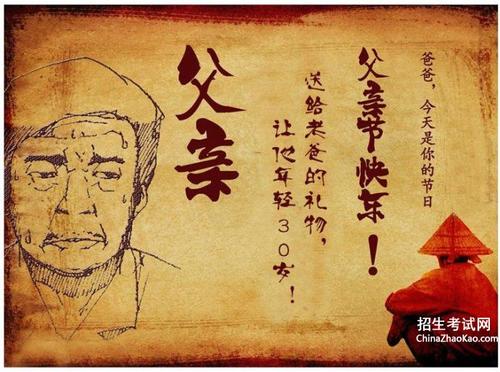 爸爸，今天是你的节日
父亲节快乐！
送给老爸的礼物，
让他年轻30岁！
父亲
招生考试网
ChinaZhaoKao.com